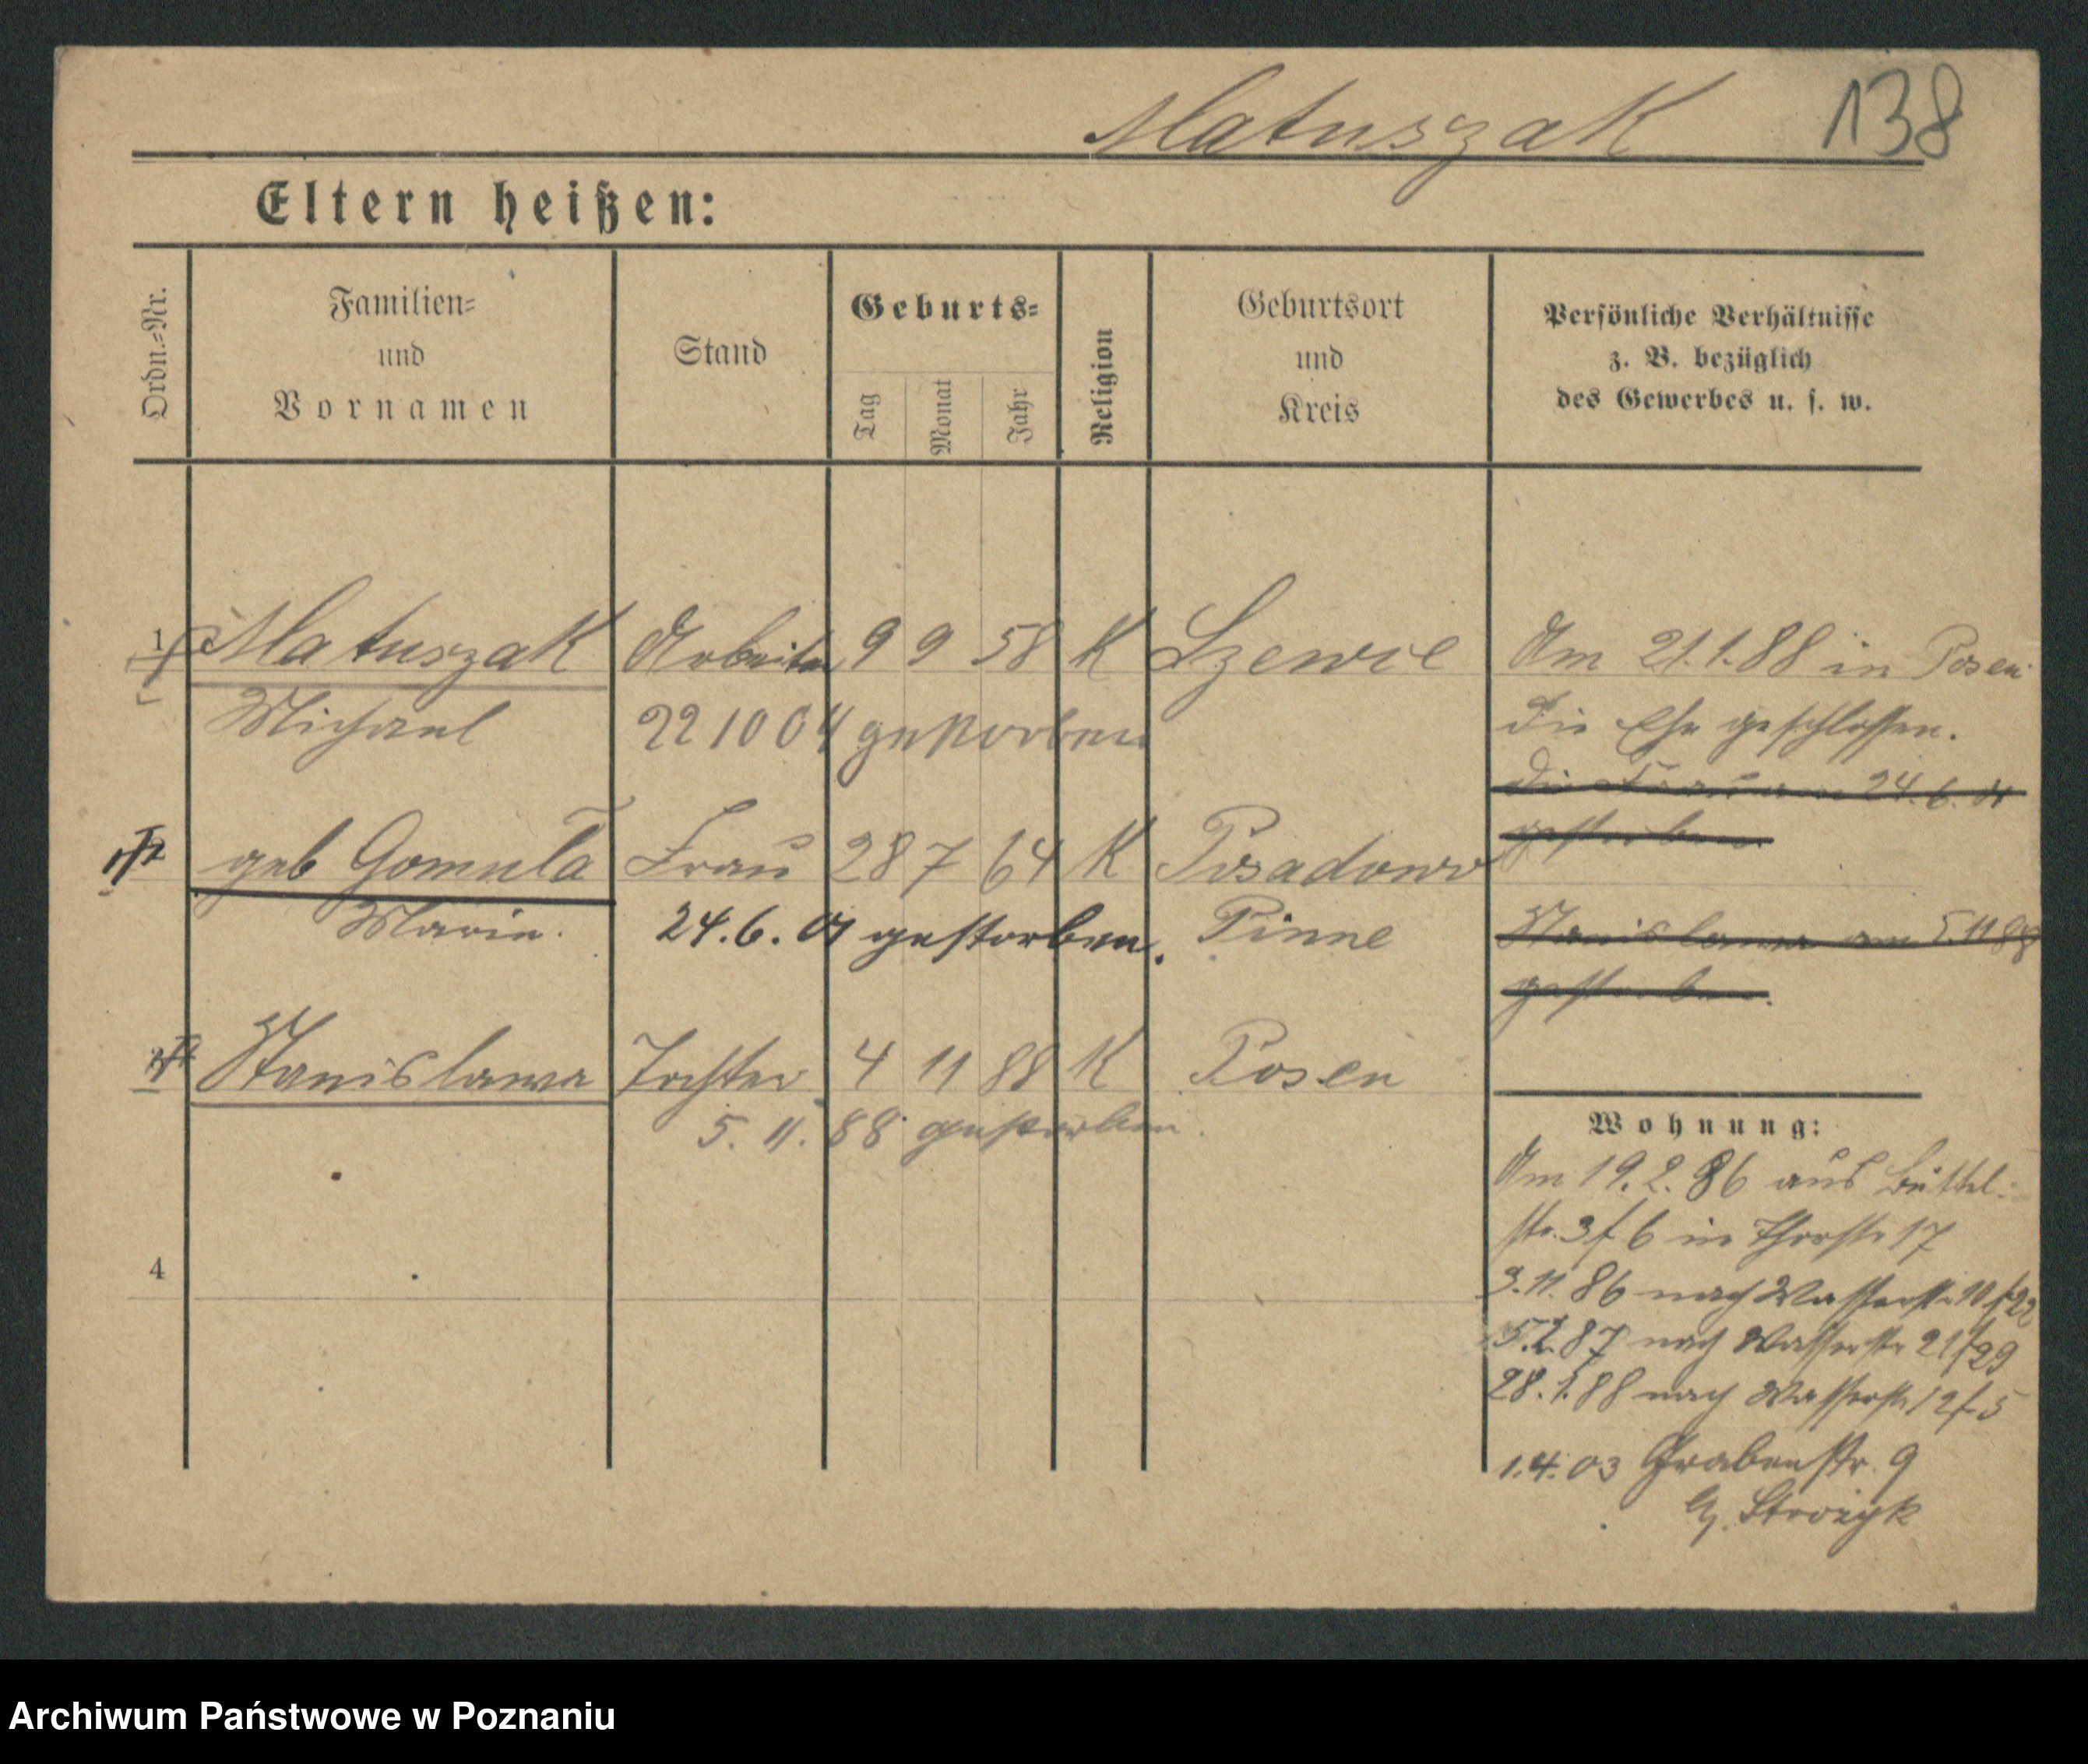 Matuszak 138
Eltern heißen:
Ordn.-Nr. Familien- und Vornamen Stand Geburts- Tag Monat Jahr Religion Geburtsort und Kreis Persönliche Verhältnisse z. B. bezüglich des Gewerbes u. s. w.
1 Matuszak Arbeiter 9 9 58 K Szewce Am 21.1.88 in Posen
Michael 22 10 04 gestorben die Ehe geschlossen.
Die Frau am 24.6.01
gestorben.
geb Gomula Frau 28 7 64 K Posadowo
Marie. 24.6.01 gestorben. Pinne Stanislawa am 5.11 88
gestorben.
Stanislawa Tochter 4 11 88 K Posen
5. 11. 88 gestorben.
Wohnung:
Am 19.2.86 aus Büttel-
str. 3 f 6 in Thorstr 17
3.11.86 nach Wasserstr 10 f 22
5.2.87 nach Wasserstr 21 f 29
28.1.88 nach Wasserstr 12 f 5
1.4.03 Grabenstr. 9
Strozyk
4
Archiwum Państwowe w Poznaniu